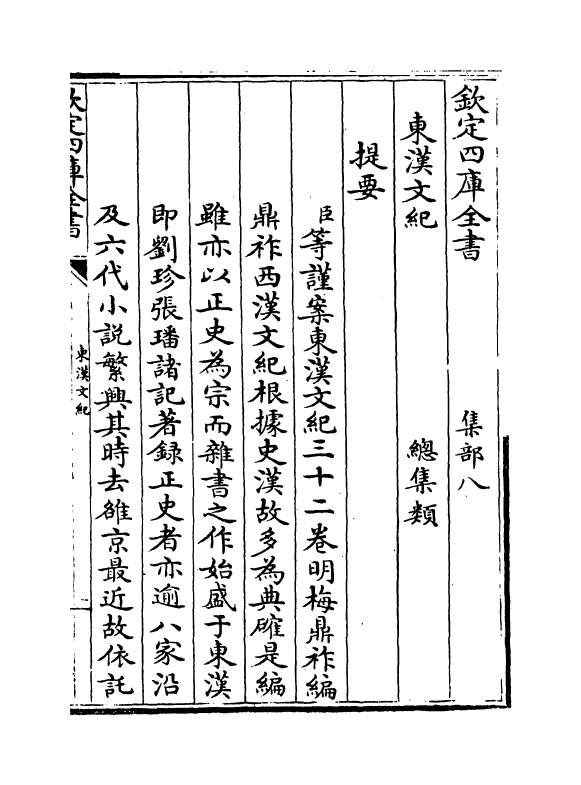 欽定四庫全書　集部八
東漢文紀　總集類
提要
臣等謹案東漢文紀三十二卷明梅鼎祚編
鼎祚西漢文紀根據史漢故多為典確是編
雖亦以正史為宗而雜書之作始盛于東漢
即劉珍張璠諸記著録正史者亦逾八家沿
及六代小説繁興其時去雒京最近故依託
欽定四庫全書
東漢文紀
一